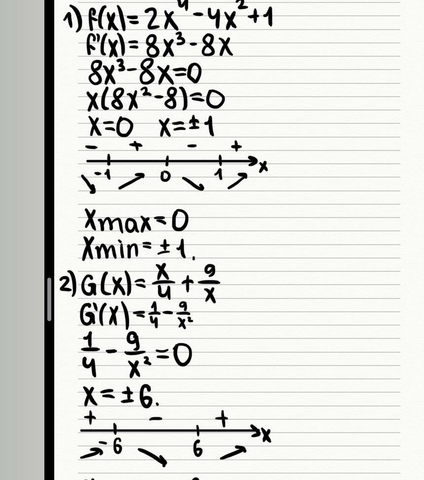 1) f(x) = 2x⁴ - 4x² + 1
f'(x) = 8x³ - 8x
8x³ - 8x = 0
x(8x² - 8) = 0
x = 0 x = ±1
- + - +
-1 0 1 x
Xmax = 0
Xmin = ±1.
2) G(x) = x/4 + 9/x
G'(x) = 1/4 - 9/x²
1/4 - 9/x² = 0
x = ±6.
+ - +
-6 6 x